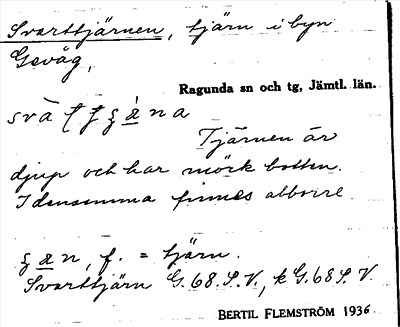 Svarttjärnen, tjärn i byn
Gevåg,
Ragunda sn och tg, Jämtl. län.
Tjärnen är
djup och har mörk botten.
I densamma finnes abborre.
f. = tjärn.
Svarttjärn G.68.S.V., k G.68 S. V.
BERTIL FLEMSTRÖM 1936